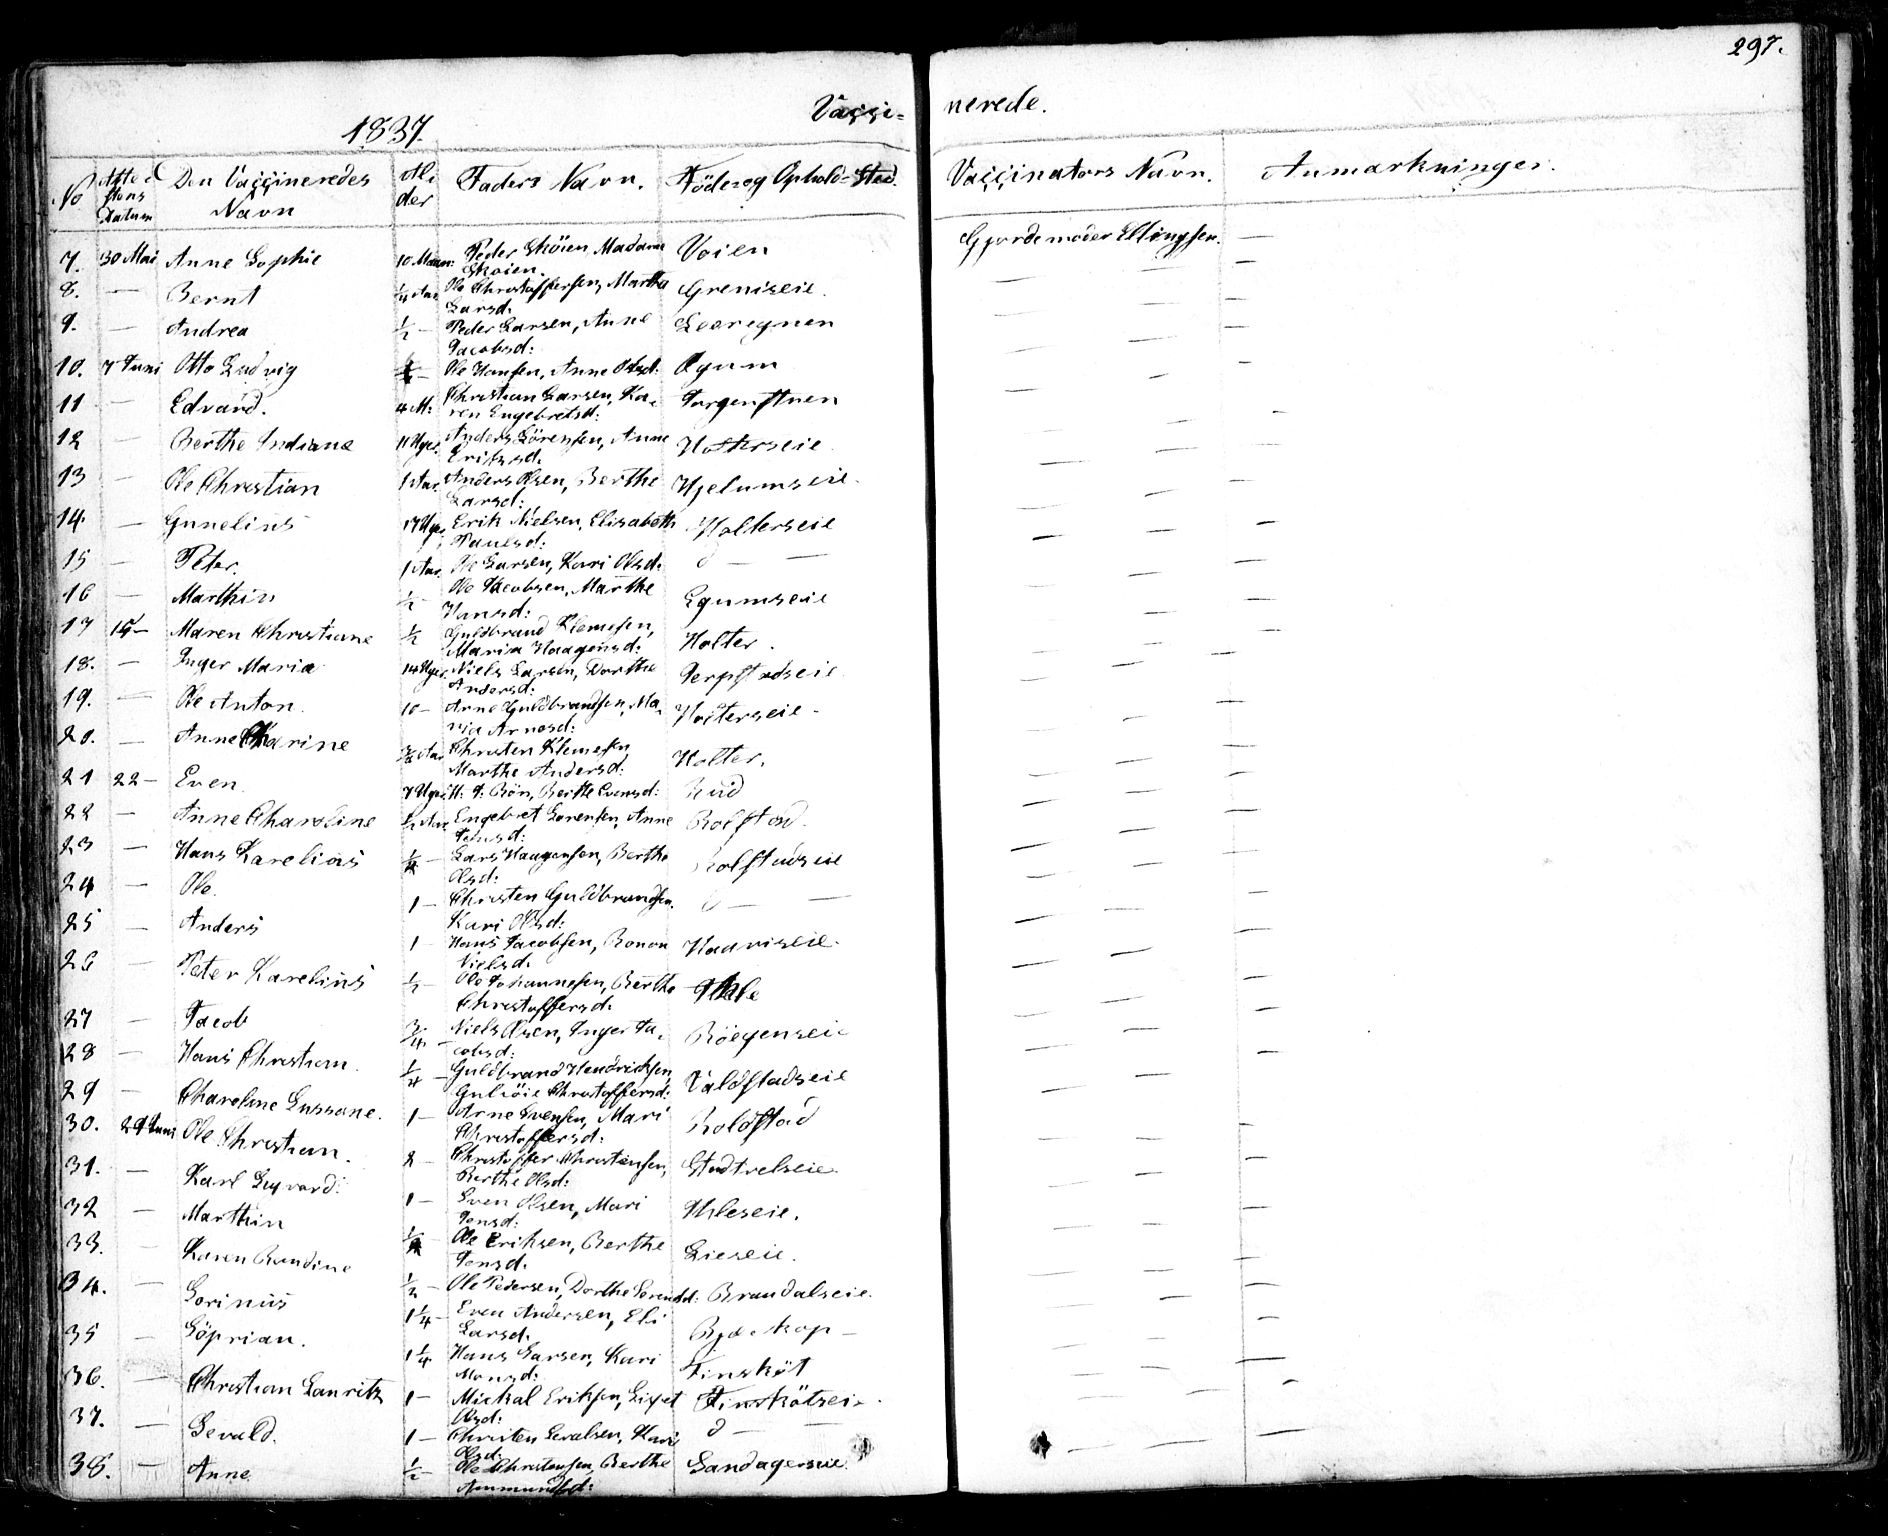 297.
Vaççi= nerede.
1837
No Attestens Datum Den Vaççineredes Navn Alder Faders Navn. Föde= og Ophold=Sted. Vaççinators Navn. Anmærkninger.
7. 30 Mai Anne Sophie 10 Maan: Peder Sköien Madame Skoien. Voien Gjordemoder Ellingsen. —
8. — Bernt ¼ Aar Ole Christoffersen, Marthe Larsd: Greniseie. — —
9. — Andrea ½ — Peder Larsen, Anne Jacobsd: — —
10. 7 Juni Otto Ludvig Ole Hansen, Anne Olsd: Egum — —
11 — Edvard. 4 M: Christian Larsen, Karen Engebretsd: — —
12 — Berthe Indiane 11 Uger. Anders Sörensen, Anne Eriksd. Holterseie — —
13 — Ole Christian 1 Aar. Anders Olsen, Berthe Larsd: Hjelumseie. — —
14. — Gunelius 17 Uger Erik Nielsen, Elisabeth Paulsd: Holterseie — —
15 — Peter. 1 Aar. Ole Larsen, Kari Olsd: d — — — —
16 — Marthin ½ — Ole Jacobsen, Marthe Hansd: Egumseie — —
17 15 — Maren Christiane ½ Guldbrand Klemesen, Maria Haagensd: Holter. — —
18. — Inger Maria 14 Uger. Niels Larsen, Dorthe Andersd: — —
19. — Ole Anton. 10 — Arne Guldbrandsen, Maria Arnesd: Holterseie — — —
20. — Anne Karine Aar Christen Klemesen Marthe Andersd: Holter. — —
21 22 — Even. 7 Uger H: P: Bön, Berthe Evensd: Rud — —
22 — Anne Charoline ½ Aar Engebret Sorensen, Anne Jensd: Rolfstad. — —
23 — Hans Karelius ¼ — Lars Haagensen, Berthe Olsd: Rolfstadseie — —
24 — Ole. 1 — Christen Guldbrandsen. Kari Olsd: d — — — —
25 — Anders 1 — Hans Jacobsen, Ronou Nielsd. Haaviseie. — —
26 — Peter Karelius ½ — Ole Johannesen, Berthe Christoffersd. Ihle — —
27 — Jacob ¾ — Niels Olsen, Inger Jacobsd: — —
28 — Hans Christian. ¼ — Guldbrand Hendricksen Guliöie Christoffersd: Valdstadseie — —
29 — Charoline Sussane. 1 — Arne Svensen, Mari Christoffersd: Roldstad — —
30. 29 Juni Ole Christian. 2 — Christoffer Christensen, Berthe Olsd: — —
31. — Karl Sigvard: 1 — Even Olsen, Mari Jensd: Ihleseie. — —
32 — Marthin ½ Ole Eriksen, Berthe Jensd. Lieseie. — —
33. — Karen Randine ½ — Ole Pedersen, Dorthe Sorensd: Brandalseie. — —
34. — Sorinus 1¼ — Even Andersen, Eli Larsd. — —
35 — Söprian. 1¼ Hans Larsen, Kari Monsd: Finsköt — —
36. — Christian Lauritz 1 — Mickal Eriksen, Lisbet Olsd: — —
37. — Sevald. 1 — Christen Sevalsen, Kari Olsd. d — — — —
38. — Anne. ½ — Ole Christensen, Berthe Ammundsd: Sandagerseie. — —